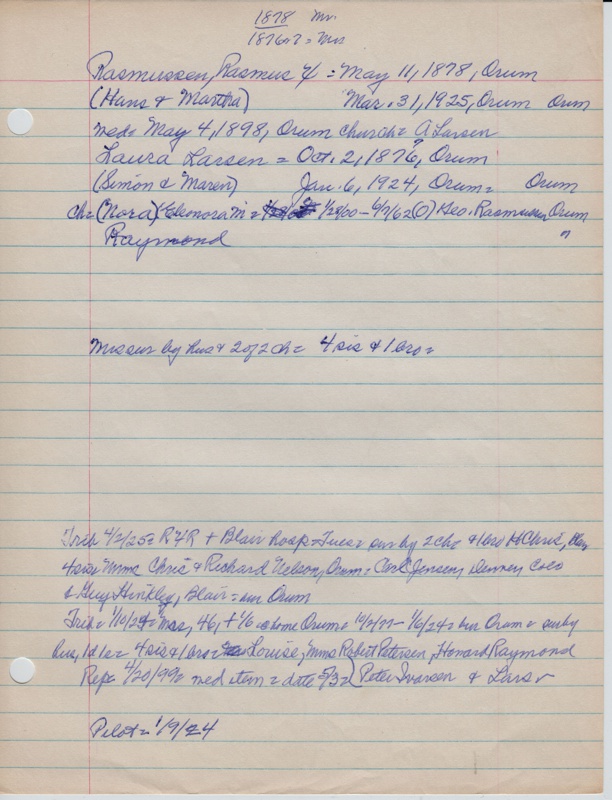 1878 Mr.
1876or7 = Mrs
Rasmussen, Rasmus = May 11, 1878, Orum
(Hans & Martha) Mar. 31, 1925, Orum Orum
med= May 4, 1898, Orum church = A Larsen
Laura Larsen = Oct. 2, 1876, Orum
(Simon & Maren) Jan. 6, 1924, Orum = Orum
ch= (Nora) Eleonora M = 1/28/00 - 4/7/62 (O) Geo. Rasmussen Orum
Raymond "
Mrs sur by hus & 2 of 2 ch = 4 sis & 1 bro =
Trib 4/2/25 = R + Blair hosp = Tues = sur by 2 ch = & 1 bro Chris, Blair
4 sis = Mmes Chris & Richard Nelson, Orum = Carl Jensen, Denver, Colo
& Guy Hinkley, Blair = bur Orum
Trib = 1/10/24 = Mrs, 46, + 1/6 = home Orum = 10/2/77 - 1/6/24 = bur Orum = sur by
hus, = 4 sis & 1 bro = Louise, Mmes Robert Petersen, Howard Raymond
Rep = 4/20/99 = med item = date 5/3 = ) Peter Ivarsen & Lars
Pilot = 1/9/24